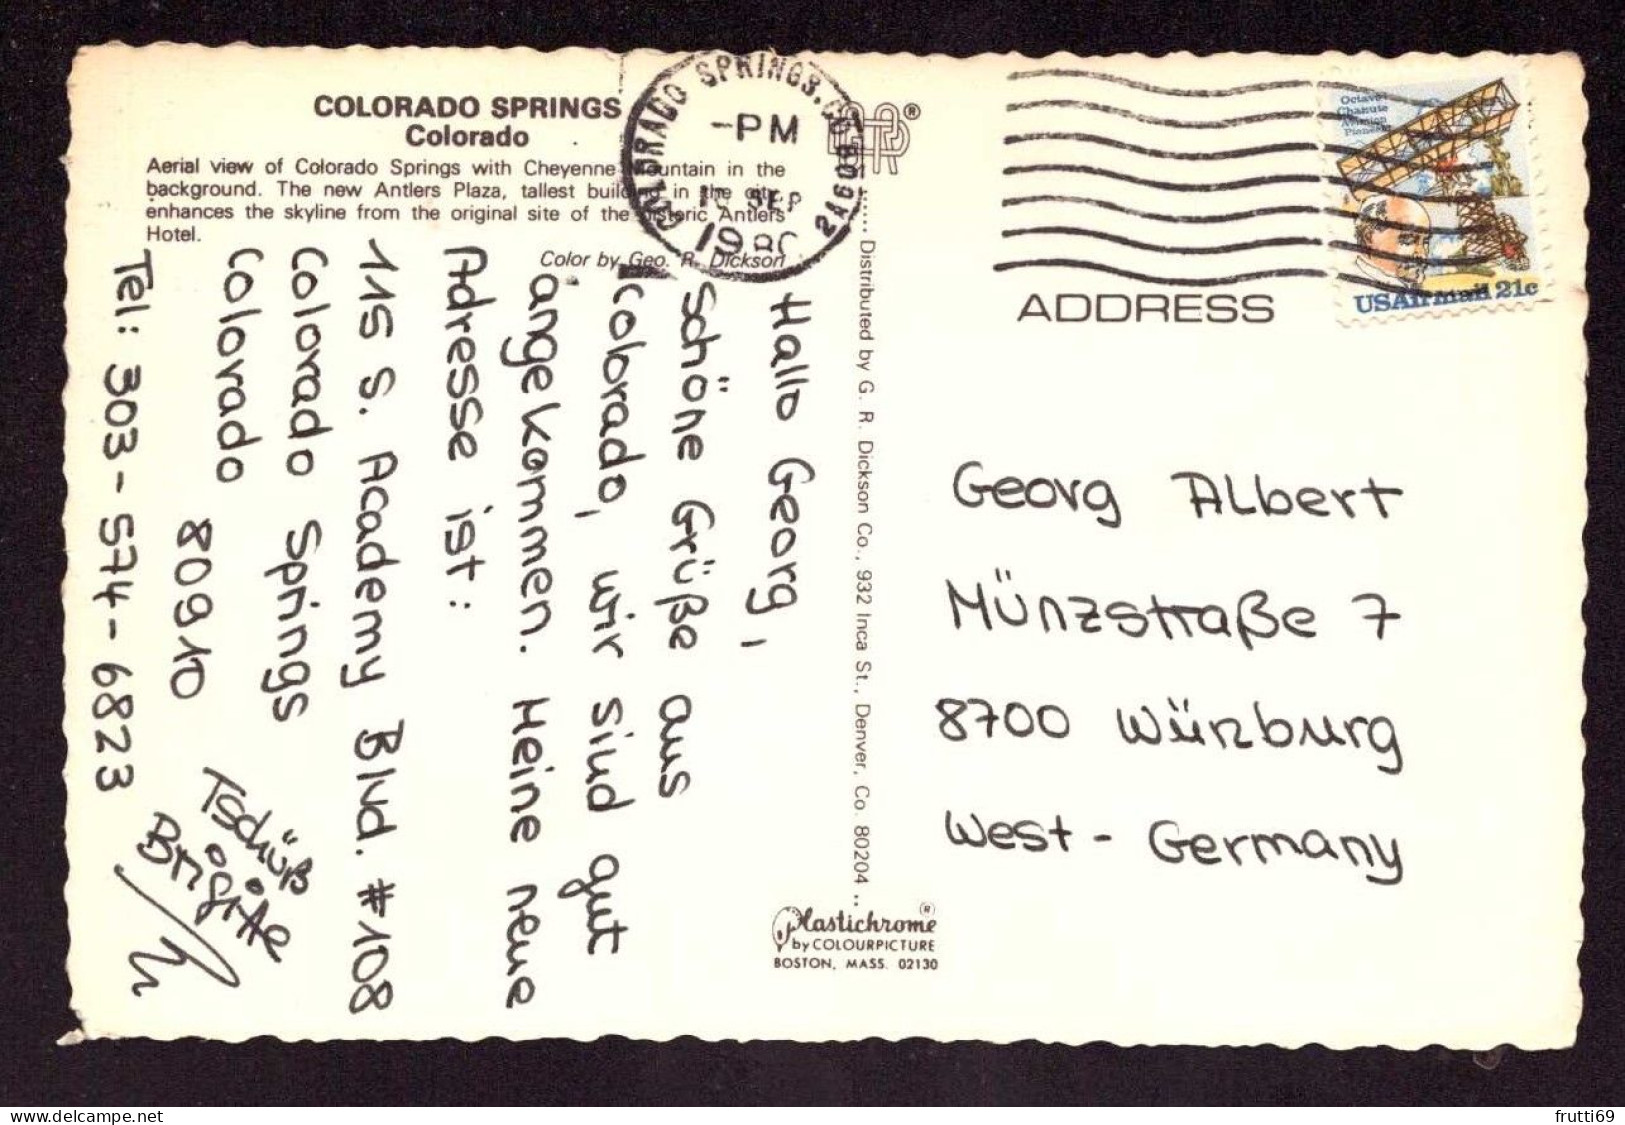 COLORADO SPRINGS
Colorado
Aerial view of Colorado Springs with Cheyenne Mountain in the
background. The new Antlers Plaza, tallest building in the city
enhances the skyline from the original site of the historic Antlers
Hotel.
Color by Geo. R. Dickson
COLORADO SPRINGS, CO
-PM
SEP
®
Octave
Chanute
Aviation
Pioneer
USAirmail 21c
ADDRESS
Hallo Georg,
Schöne Grüße aus
Colorado, wir sind gut
angekommen. Meine neue
Adresse ist:
115 S. Academy Blvd. #108
Colorado Springs
Colorado
80910
Tel: 303-574-6823
Tschüß
Brigitte
Distributed by G. R. Dickson Co., 932 Inca St., Denver, Co. 80204
Georg Albert
Münzstraße 7
8700 Würzburg
West-Germany
Plastichrome ®
by COLOURPICTURE
BOSTON, MASS. 02130
delcampe.net
frutti69